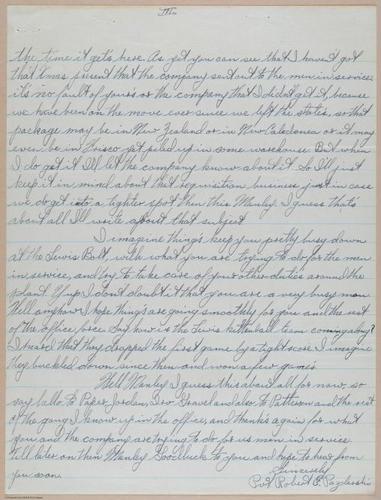 III
the time it gets here. As yet you can see that I haven't got
that Xmas present that the company sent out to the men in service
it's no fault of your's or the company that I didn't get it, because
we have been on the move ever since we left the states, so that
package may be in New Zealand or in New Caledonia or it may
even be in Frisco yet piled up in some warehouse. But when
I do get it I'll let the company know about it. So I'll just
keep it in mind about that requisition business just in case
we do get into a tighter spot than this Manley. I guess that's
about all I'll write about that subject
I imagine thing's keep you pretty busy down
at the Lewis Bolt, with what you are trying to do for the men
in service, and try to take care of your other duties around the
plant. Yup I don't doubt it that you are a very busy man
Well anyhow I hope things are going smoothly for you and the rest
of the office force. Say how is the Lewis kittenball team coming along?
I heard that they dropped the first game by a tight score. I imagine
they buckled down since then and won a few game's.
Well Manley I guess this about all for now, so
say hello to Jordan, and also to Patterson and the rest
of the gang I know up in the office, and thanks again for what
you and the company are trying to do for us men in service
Till later on then Manley Good luck to you and hope to hear from
you soon.
Sincerely
Pvt Robert